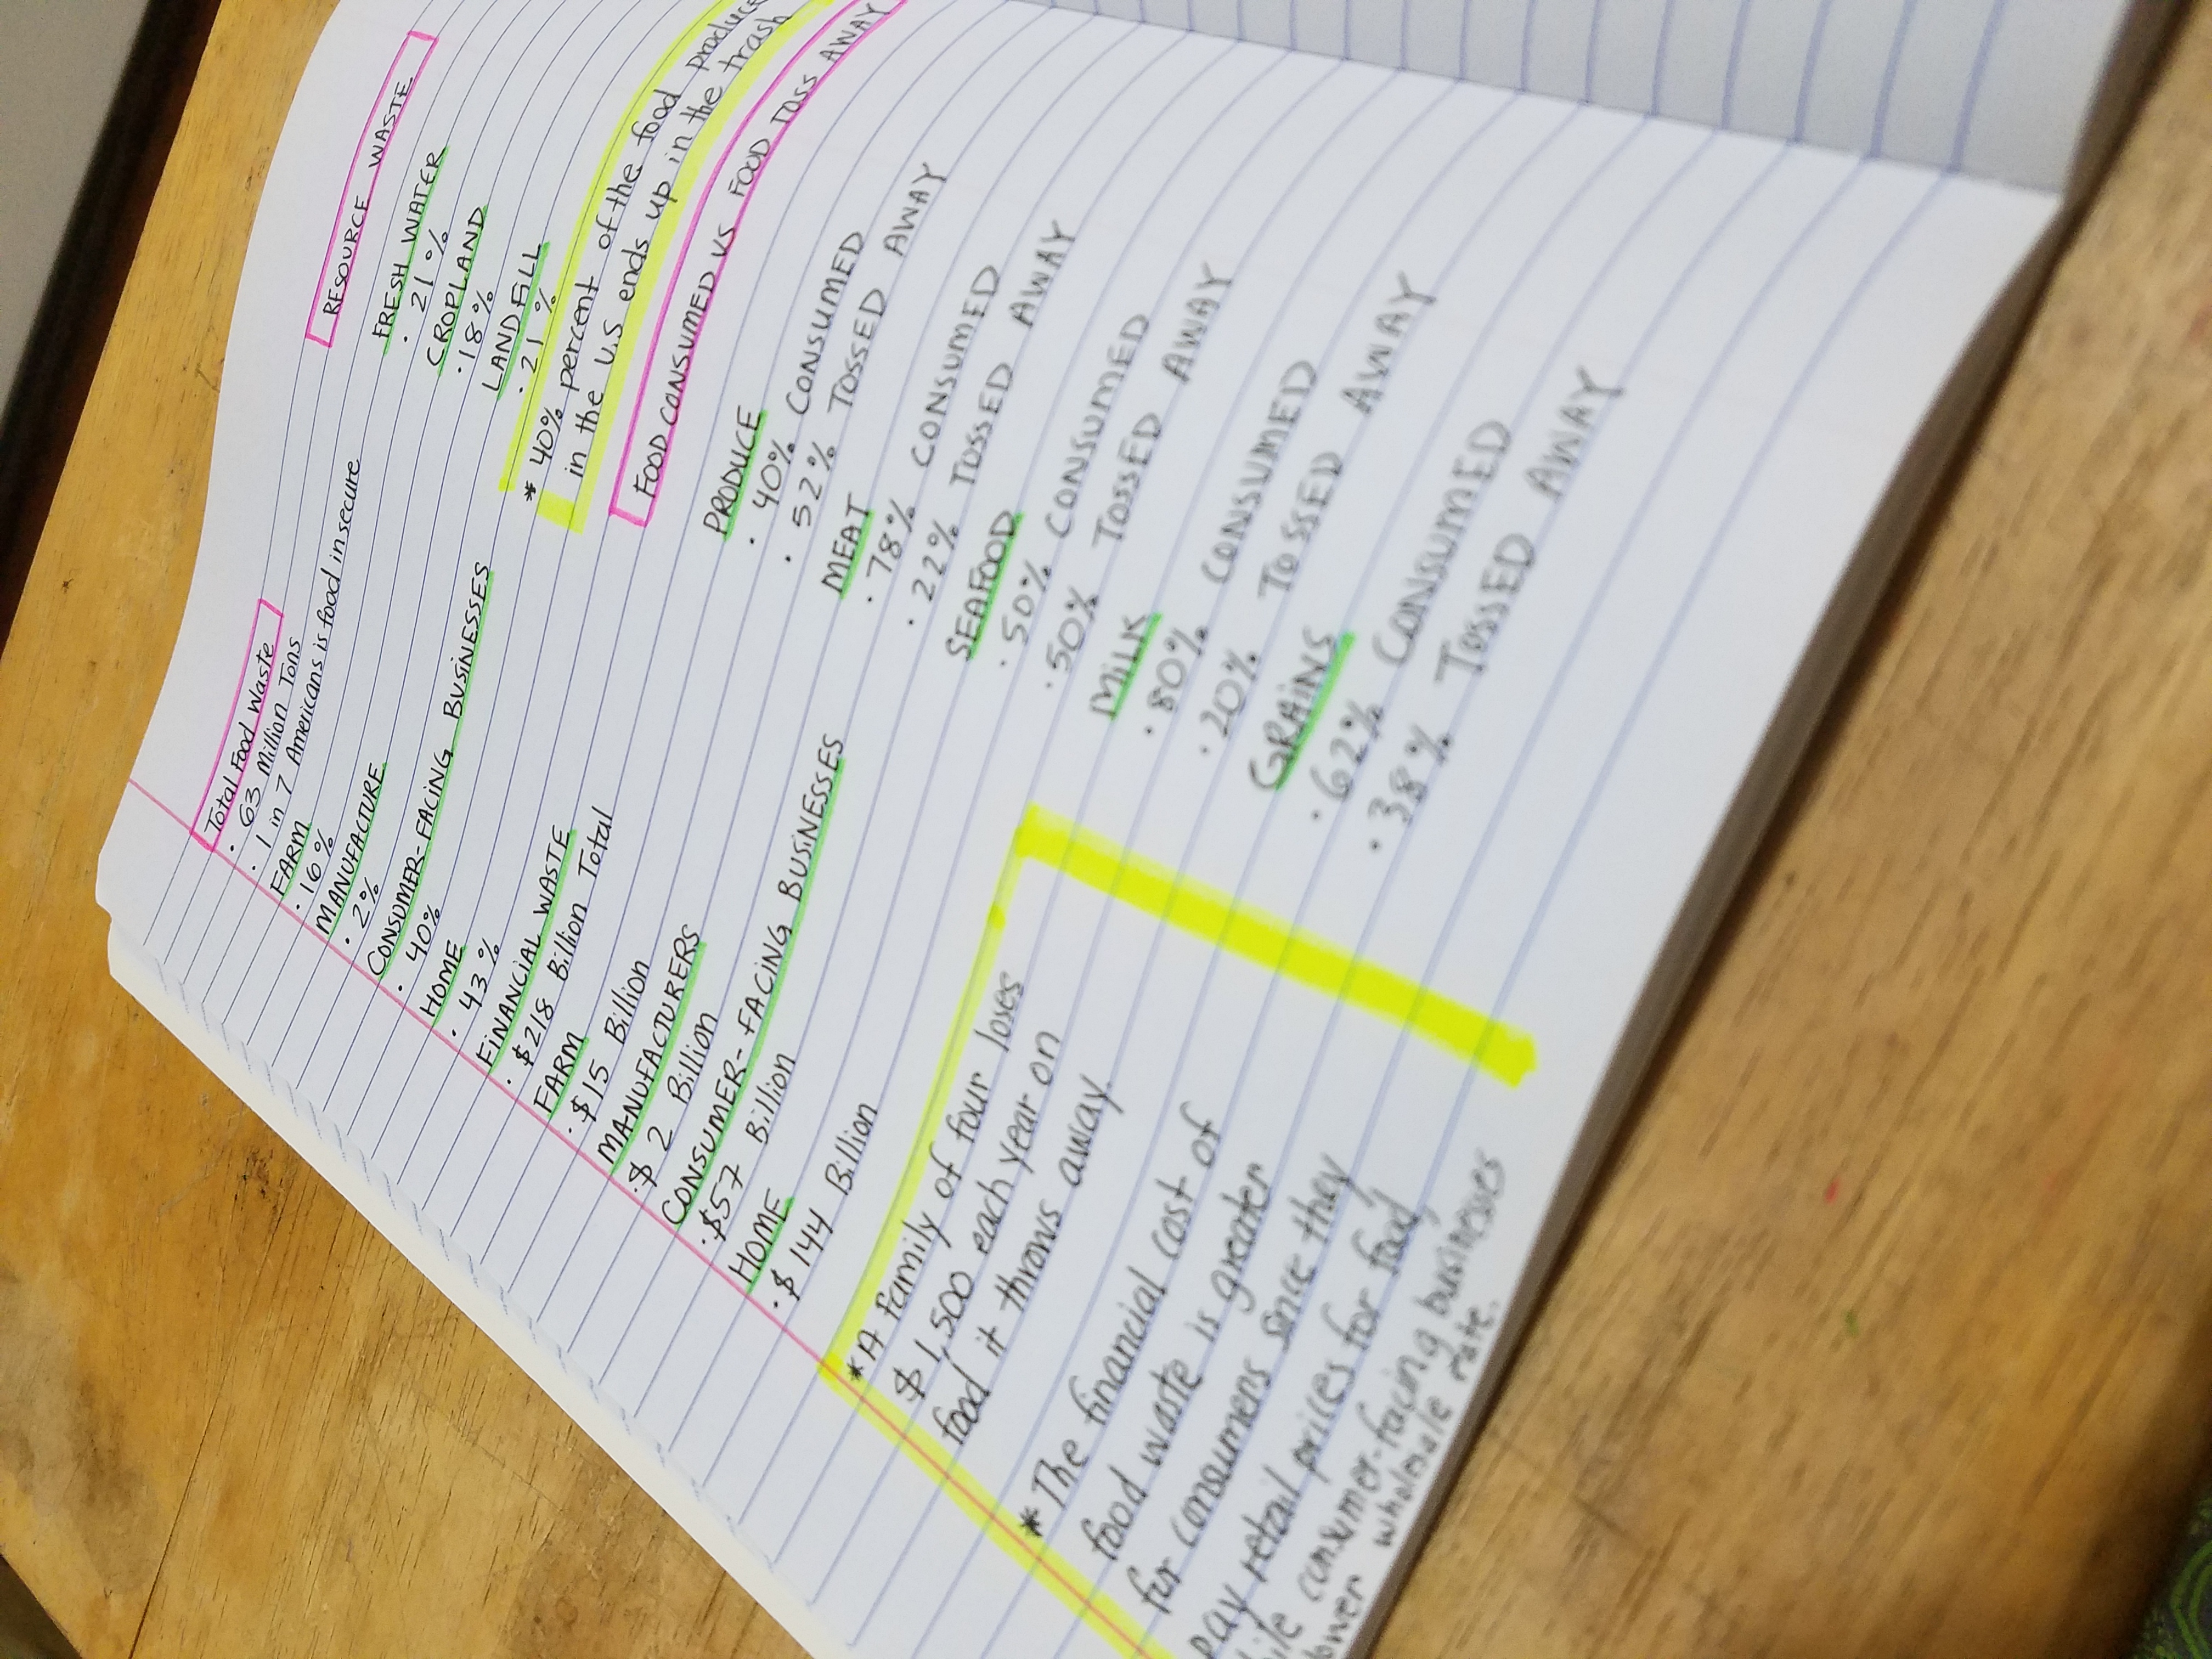 Total Food Waste
· 63 Million Tons
· 1 in 7 Americans is food insecure
FARM
· 16%
MANUFACTURE
· 2%
CONSUMER-FACING BUSINESSES
· 40%
HOME
· 43%
FINANCIAL WASTE
· $218 Billion Total
FARM
· $15 Billion
MANUFACTURERS
· $2 Billion
CONSUMER-FACING BUSINESSES
· $57 Billion
HOME
· $144 Billion
* A family of four loses
$1,500 each year on
food it throws away.
* The financial cost of
food waste is greater
for consumers since they
pay retail prices for food,
consumer-facing businesses
wholesale rate.
RESOURCE WASTE
FRESH WATER
· 21%
CROPLAND
· 18%
LANDFILL
· 21%
* 40% percent of the food produce
in the U.S ends up in the trash
FOOD CONSUMED VS FOOD TOSS AWAY
PRODUCE
· 40% CONSUMED
· 52% TOSSED AWAY
MEAT
· 78% CONSUMED
· 22% TOSSED AWAY
SEAFOOD
· 50% CONSUMED
· 50% TOSSED AWAY
MILK
· 80% CONSUMED
· 20% TOSSED AWAY
GRAINS
· 62% CONSUMED
· 38% TOSSED AWAY